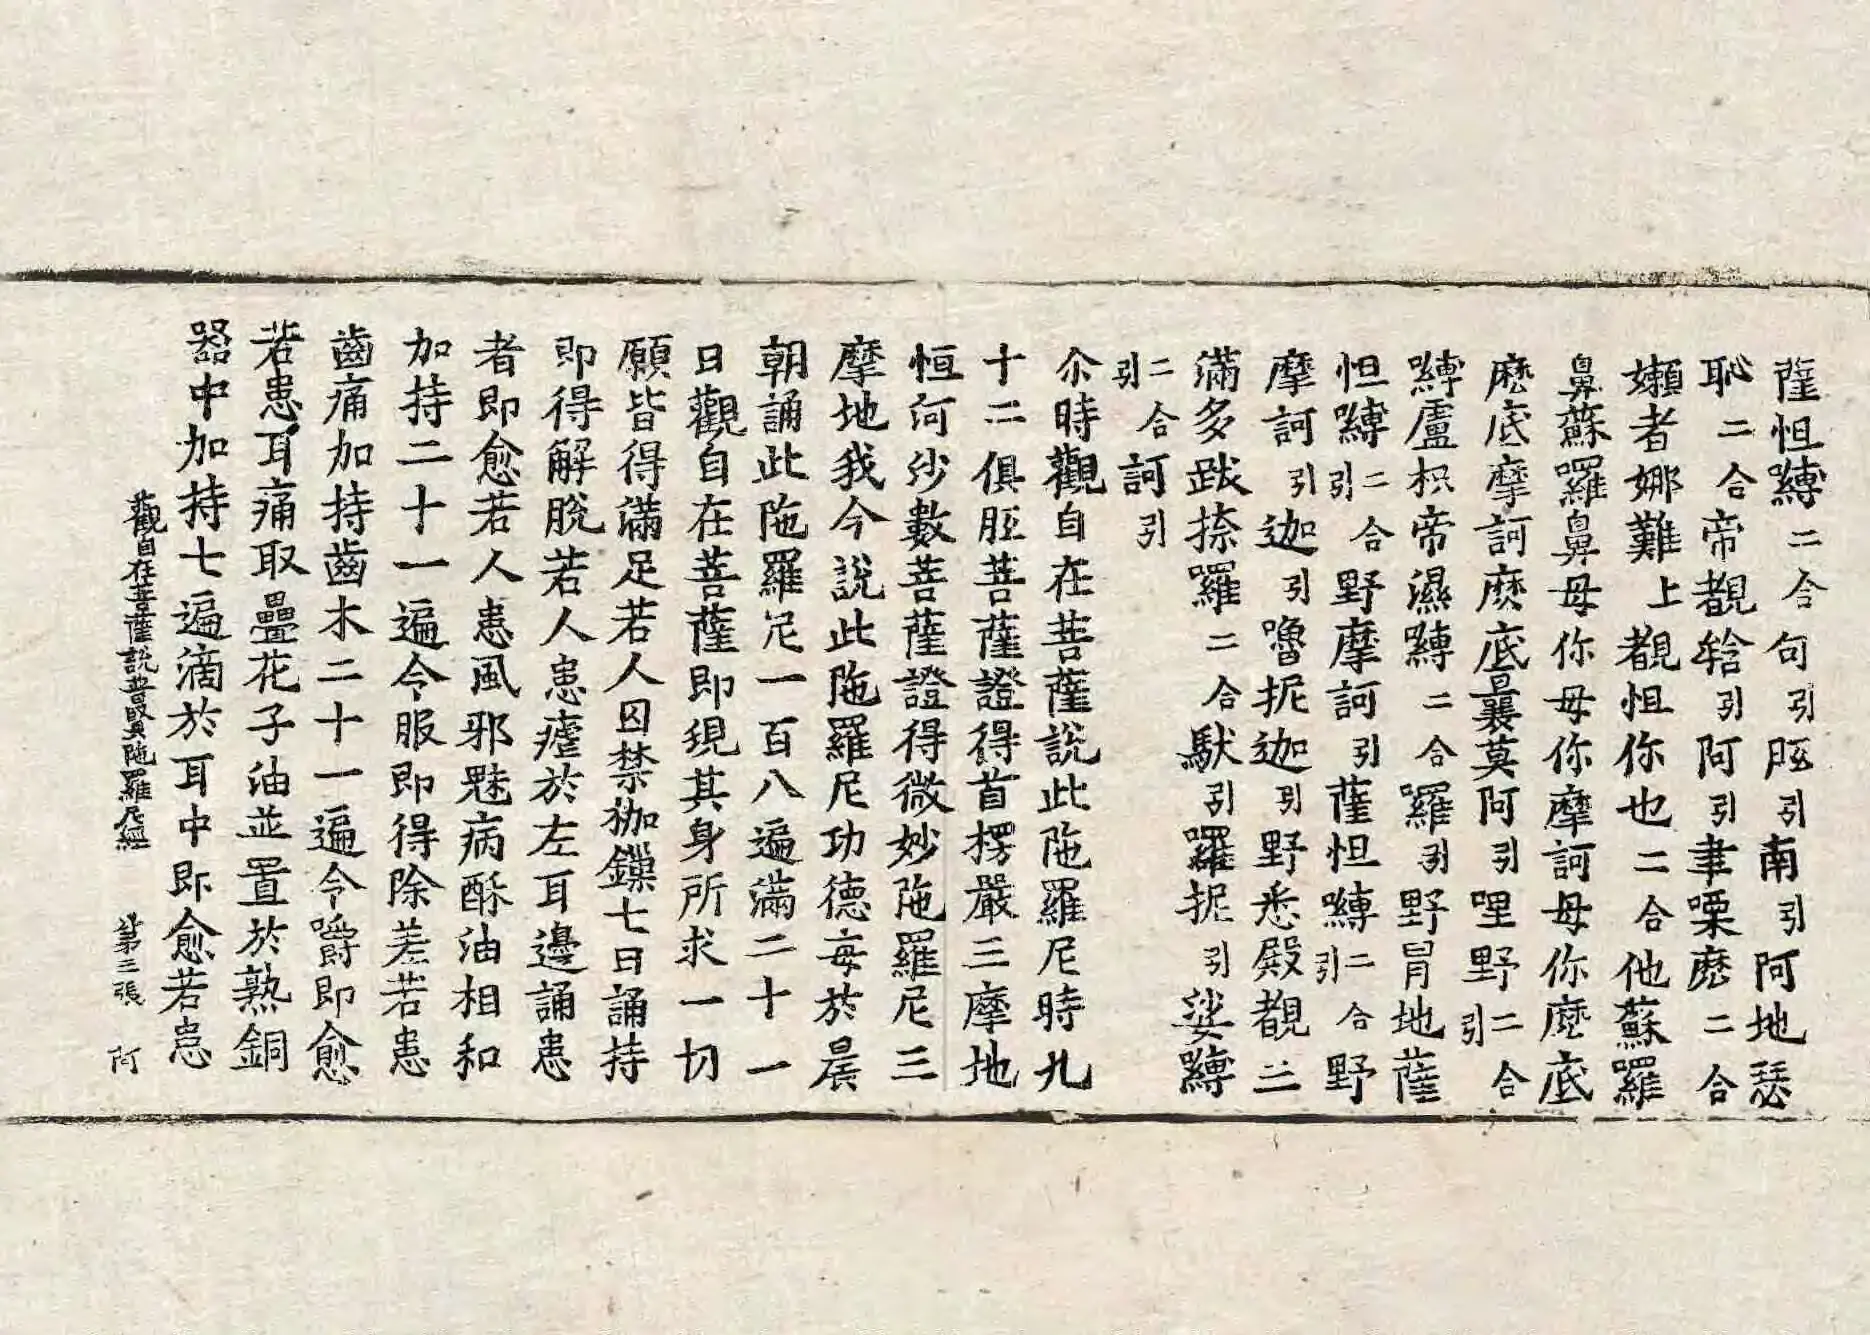 薩怛嚩二合句引胝引南引阿地瑟
恥二合帝覩牿引阿引聿㗚麽二合
嬾者娜難上覩怛你也二合他蘇羅
鼻蘇囉鼻母你母你摩訶母你麽底
麽底摩訶麽底曩莫阿引哩野二合引
嚩盧枳帝濕嚩二合囉引野冒地薩
怛嚩二合引野摩訶引薩怛嚩二合引野
摩訶引迦引嚕抳迦引野悉殿覩三
滿多跋捺囉二合馱引囉抳引娑嚩
二合引訶引
尒時觀自在菩薩說此陁羅尼時九
十二俱胝菩薩證得首楞嚴三摩地
恒河沙數菩薩證得微妙陁羅尼三
摩地我今說此陁羅尼功德每於晨
朝誦此陁羅尼一百八遍滿二十一
日觀自在菩薩即現其身所求一切
願皆得滿足若人囚禁枷鏁七日誦持
即得解脫若人患瘧於左耳邊誦患
者即愈若人患風邪魅病酥油相和
加持二十一遍令服即得除差若患
齒痛加持齒木二十一遍令嚼即愈
若患耳痛取疊花子油並置於熟銅
器中加持七遍滴於耳中即愈若患
觀自在菩薩說普賢陁羅尼經 第三張 阿